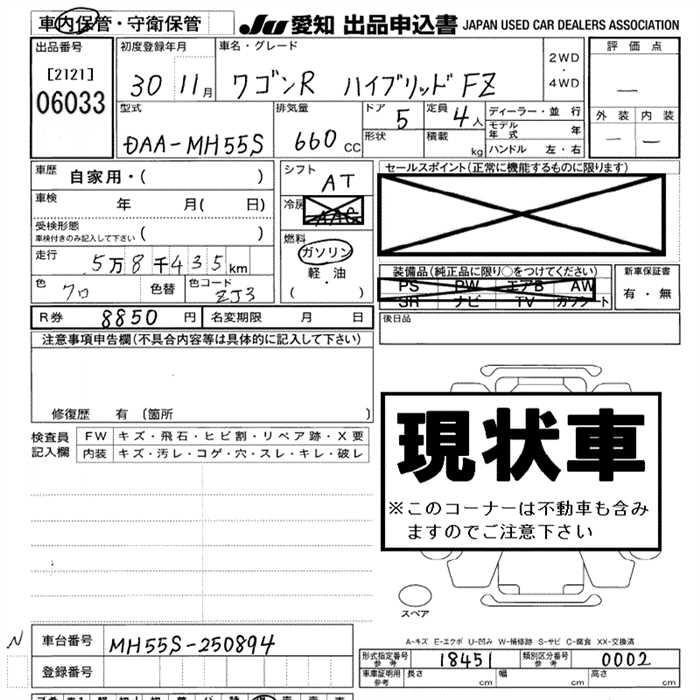 車内保管・守衛保管
JU 愛知 出品申込書 JAPAN USED CAR DEALERS ASSOCIATION
出品番号
[2121]
06033
初度登録年月
30 11月
車名・グレード
ワゴンR ハイブリッド FZ
2WD
・
4WD
評価点
—
外装 内装
— —
型式
DAA-MH55S
排気量
660 CC
ドア
5
定員
4人
形状
積載
kg
ディーラー・並行
モデル年式 年
ハンドル 左・右
車歴 自家用・( )
車検 年 月( 日)
受検形態
車検付きのみ記入して下さい ( )
走行 5万8千435km
色 クロ 色替 色コード ZJ3
シフト
AT
冷房
AAC
燃料
ガソリン
・
軽油
( )
セールスポイント(正常に機能するものに限ります)
装備品(純正品に限り○をつけてください)
PS PW エアB AW
SR ナビ TV カワシート
新車保証書
有・無
R券 8850円 名変期限 月 日
後日品
注意事項申告欄(不具合内容等は具体的に記入して下さい)
修復歴 有 (箇所 )
検査員
記入欄
FW キズ・飛石・ヒビ割・リペア跡・X要
内装 キズ・汚レ・コゲ・穴・スレ・キレ・破レ
現状車
※このコーナーは不動車も含み
ますのでご注意下さい
スペア
A-キズ E-エクボ U-凹み W-補修跡 S-サビ C-腐食 XX-交換済
N
車台番号 MH55S-250894
登録番号
形式指定番号
参考
18451
類別区分番号
参考
0002
車庫証明用
参考
長さ cm 幅 cm 高さ cm